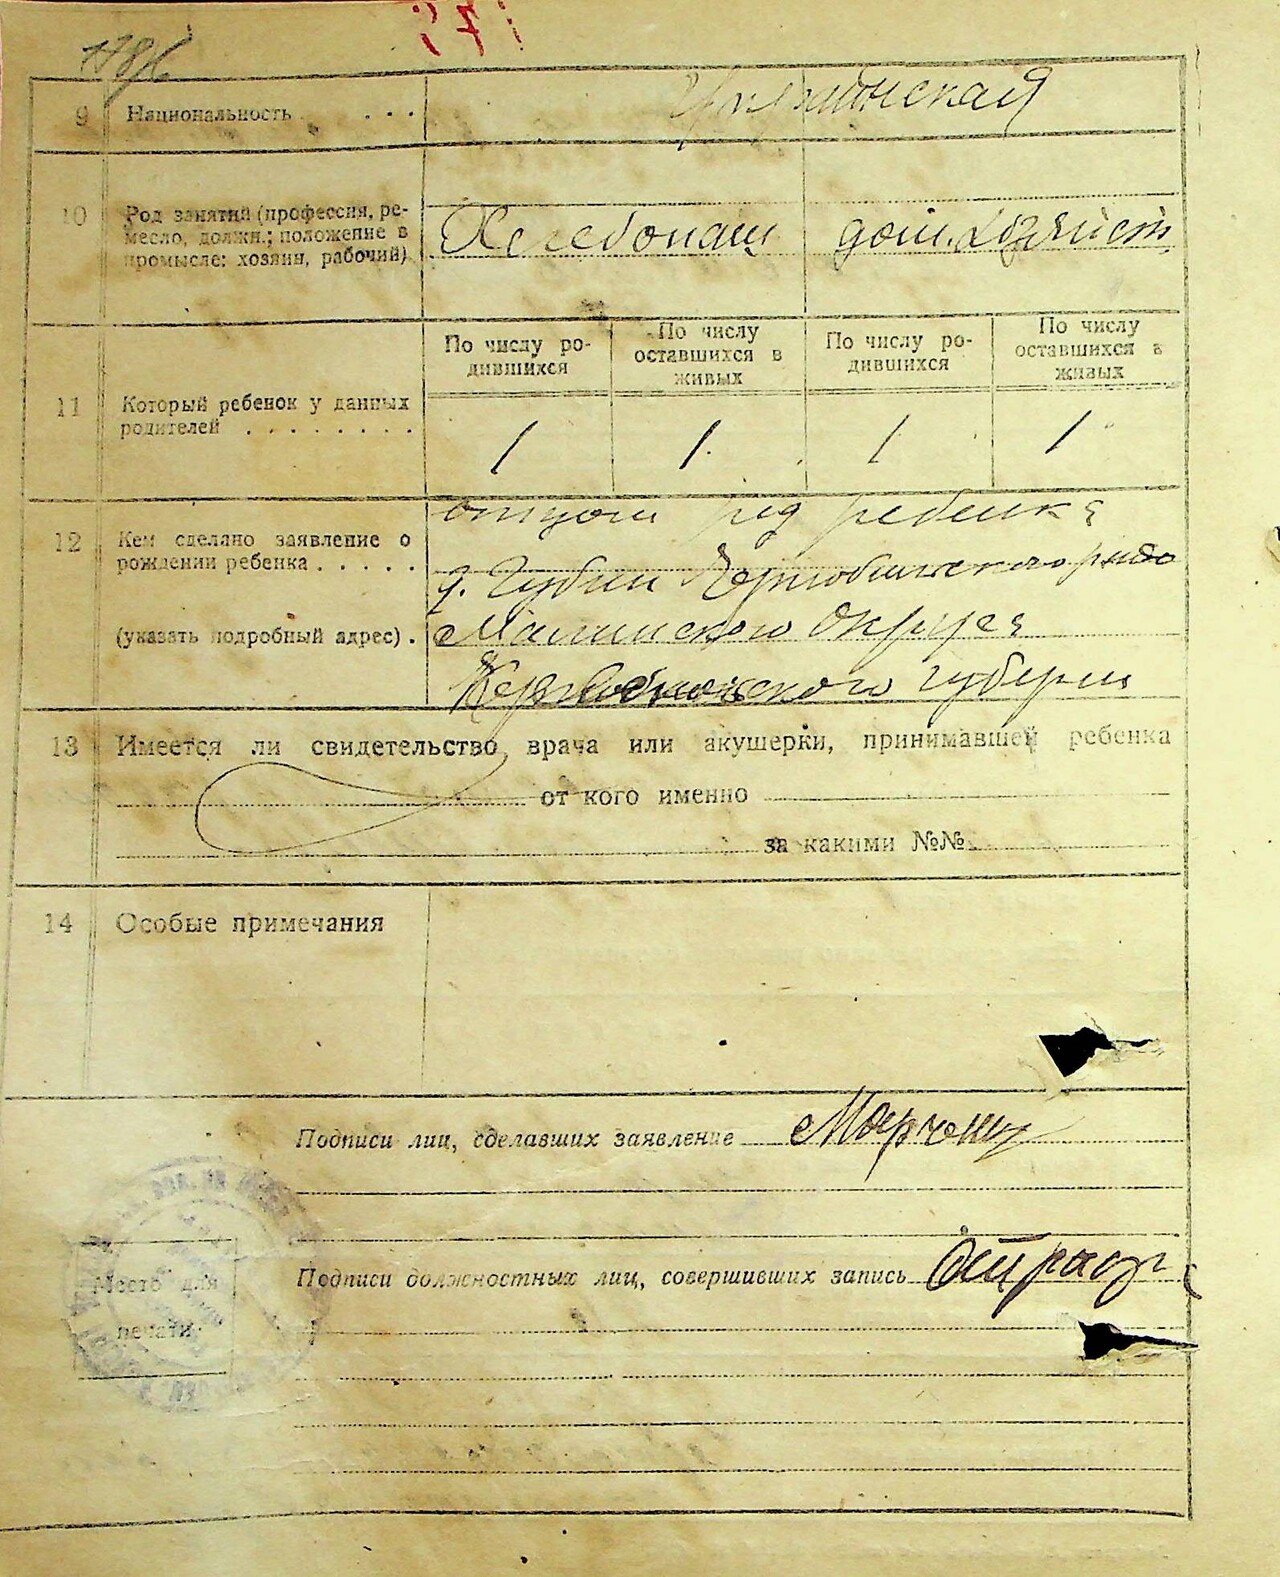 1786
9 Национальность . . . . Украинская
10 Род занятий (профессия, ре-
месло, должн.; положение в
промысле: хозяин, рабочий)
Хлебопаш дом. хозяйств
По числу ро-
дившихся
По числу
оставшихся в
живых
По числу ро-
дившихся
По числу
оставшихся в
живых
11 Который ребенок у данных
родителей . . . . . . . .
1 1 1 1
отцом ребенка
12 Кем сделано заявление о
рождении ребенка . . . . .
(указать подробный адрес) .
д. Губин Чернобыльского
Малинского округа
губерни
13 Имеется ли свидетельство врача или акушерки, принимавшей ребенка
от кого именно
за какими №№
14 Особые примечания
Подписи лиц, сделавших заявление
Подписи должностных лиц, совершивших запись
Место для
печати